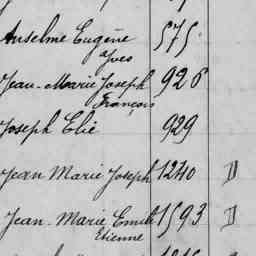 Anselme Eugène 575
Yves
Jean-Marie Joseph 926
François
Joseph Elie 929
Jean Marie Joseph 1240 D
Jean-Marie Emile 1593 D
Etienne